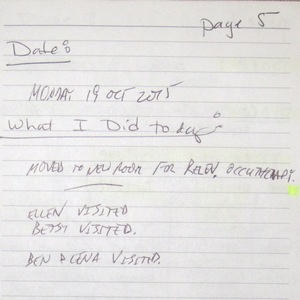 page 5
Date:
MONDAY 19 OCT 2015
What I Did today:
MOVED to NEW ROOM FOR
ELLEN VISITED
BETSY VISITED.
BEN & LENA VISITED.